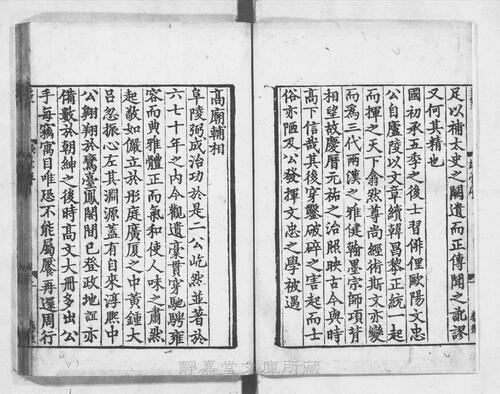 足以補太史之闕遺而正傳聞之訛謬
又何其精也
國初承五季之後士習俳俚歐陽文忠
公自廬陵以文章續韓昌黎正統一起
而揮之天下翕然尊尚經術斯文亦變
而為三代兩漢之雅健翰墨宗師項背
相望故慶曆元祐之治照映古今與時
高下信哉其後穿鑿破碎之害起而士
俗亦陋及公發揮文忠之學被遇
高廟輔相
阜陵弼成治功於是二公屹然並著於
六七十年之内今觀遺藁貫穿馳騁雍
容而典雅體正而氣和使人味之肅然
起敬如儼立於彤庭廣厦之中黄鍾大
吕忽振心左其淵源蓋有自來淳熙中
公翱翔於鸞臺鳳閣間已登政地誼亦
備數於朝紳之後時高文大冊多出公
手每竊寓目唯恐不能屬厭再還周行
靜嘉堂文庫所藏